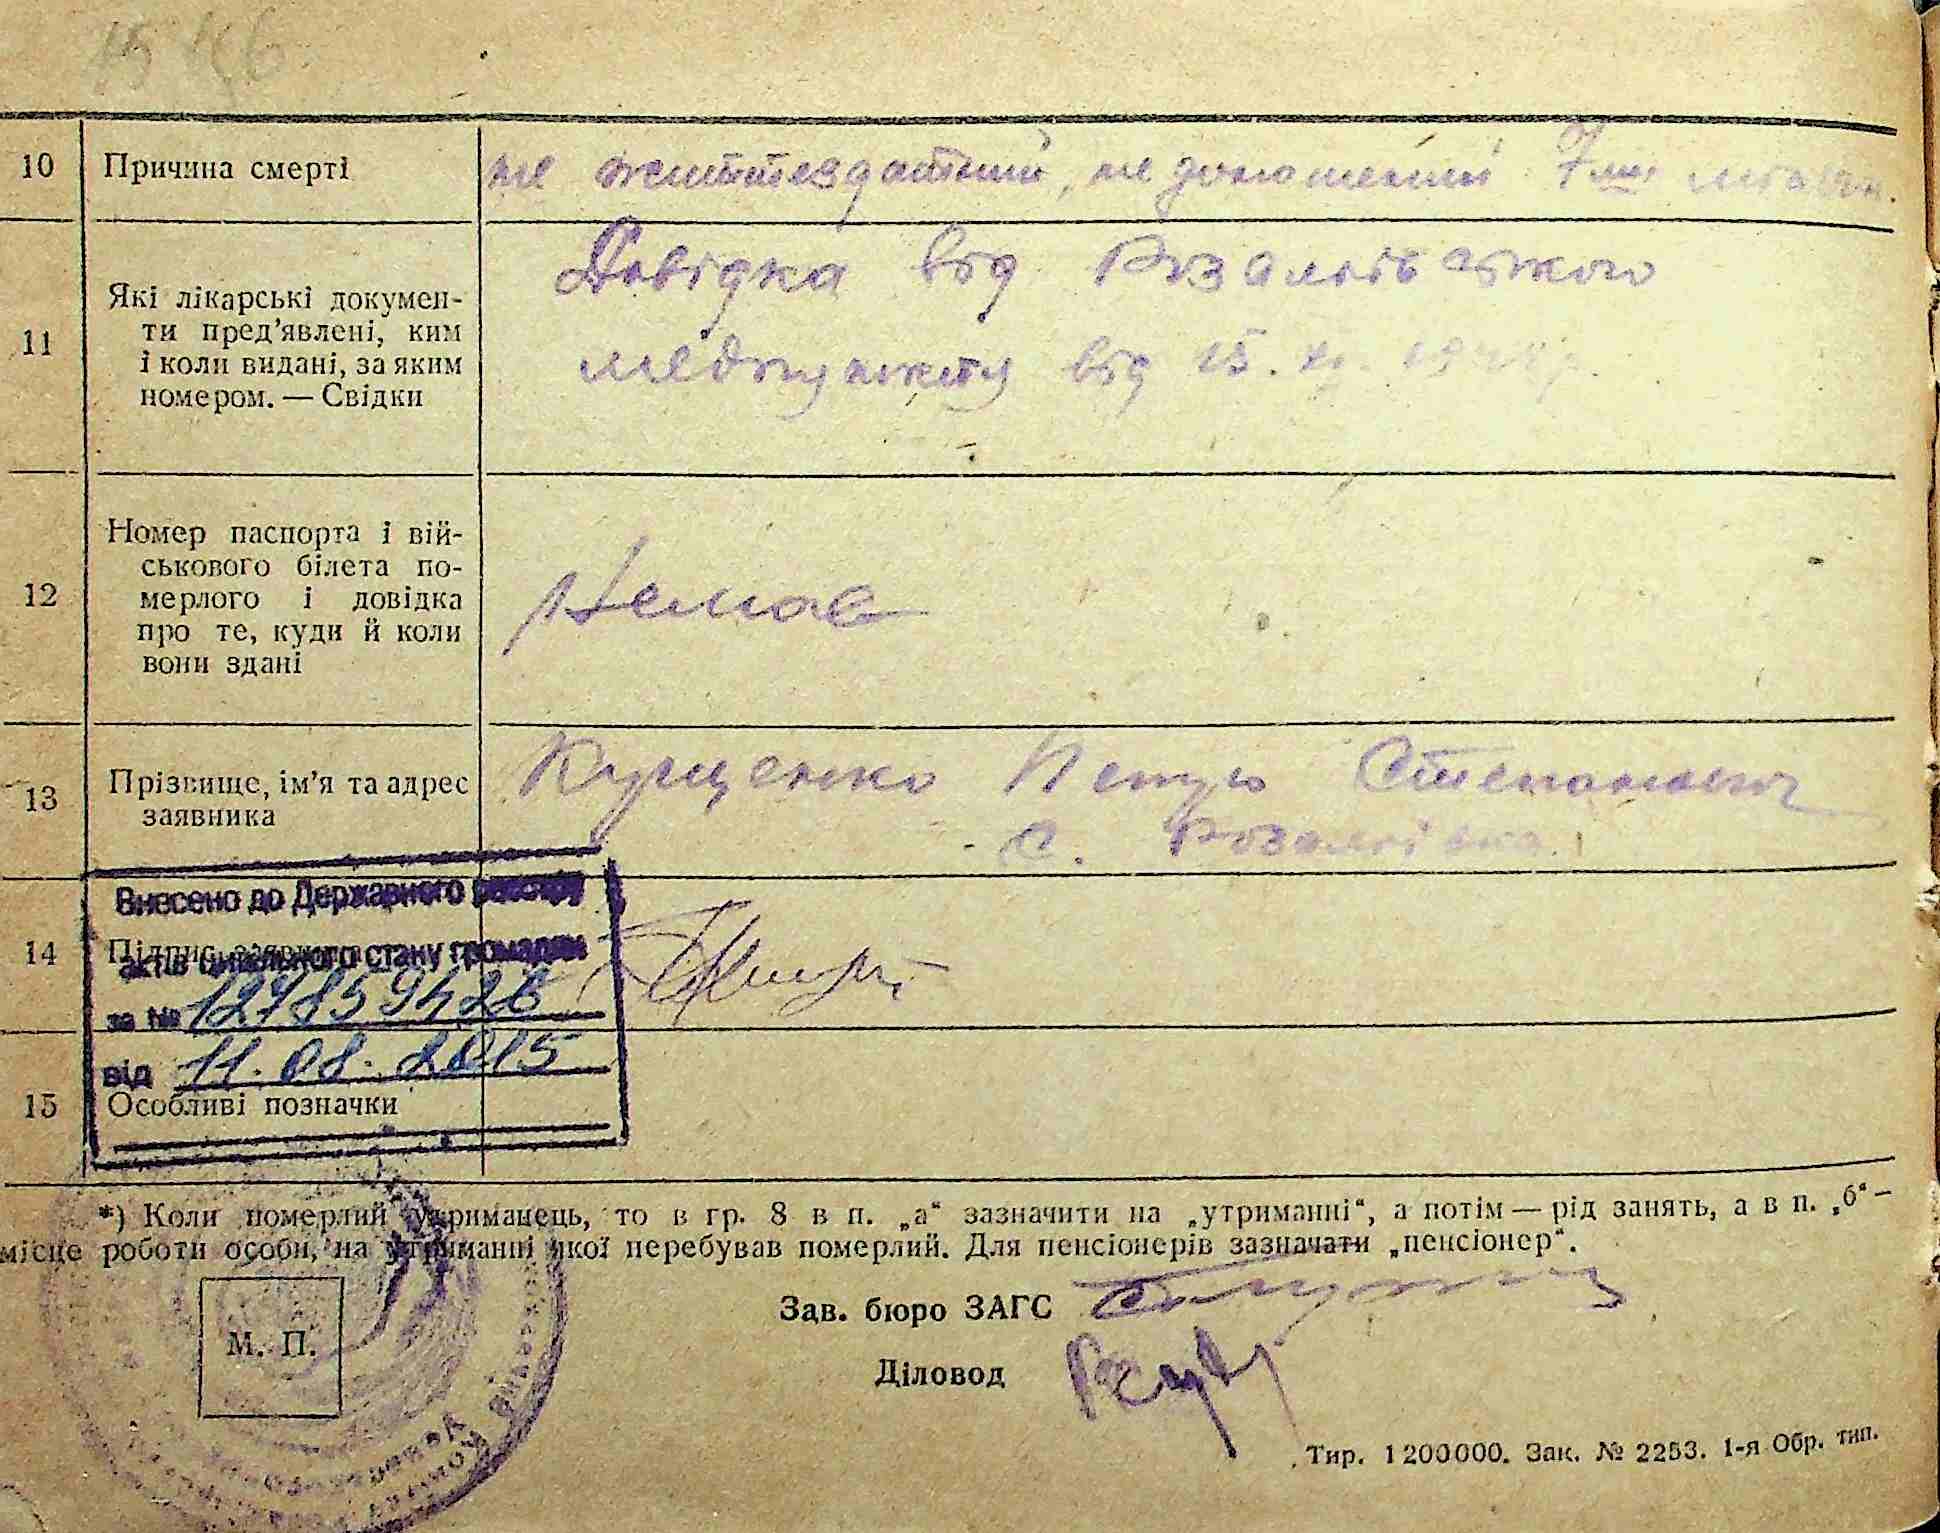 1546
10 Причина смерті не життєздатний, недоношений 7 ми місячн.
11 Які лікарські докумен-
ти пред’явлені, ким
і коли видані, за яким
номером. — Свідки
Довідка від Розаліївського
медпункту від 15. XI.
12 Номер паспорта і вій-
ськового білета по-
мерлого і довідка
про те, куди й коли
вони здані
Немає
13 Прізвище, ім’я та адрес
заявника
Кущенко Петро Степанович
с. Розаліївка
14 Підпис заявника
Внесено до Державного реєстру
актів цивільного стану громадян
за №
від 11.08.2015
15 Особливі позначки
*) Коли померлий утриманець, то в гр. 8 в п. „а“ зазначити на „утриманні“, а потім — рід занять, а в п. „б“ —
місце роботи особи, на утриманні якої перебував померлий. Для пенсіонерів зазначати „пенсіонер“.
Зав. бюро ЗАГС
М. П.
Діловод
Тир. 1200000. Зак. № 2253. 1-я Обр. тип.